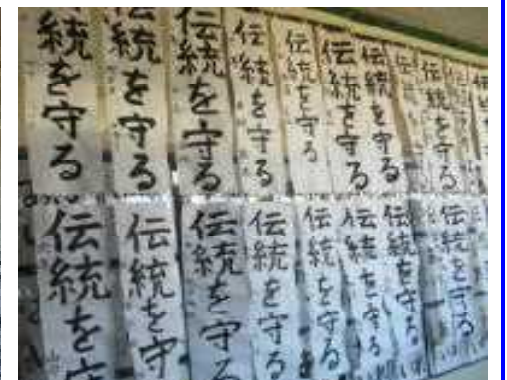 伝統を守る
伝統を守る
伝統を守る
伝統を守る
伝統を守る
伝統を守る
伝統を守る
伝統を守る
伝統を守る
伝統を守
伝統を守
伝統を守る
伝統を守る
伝統を守る
伝統を守る
伝統を守る
伝統を守る